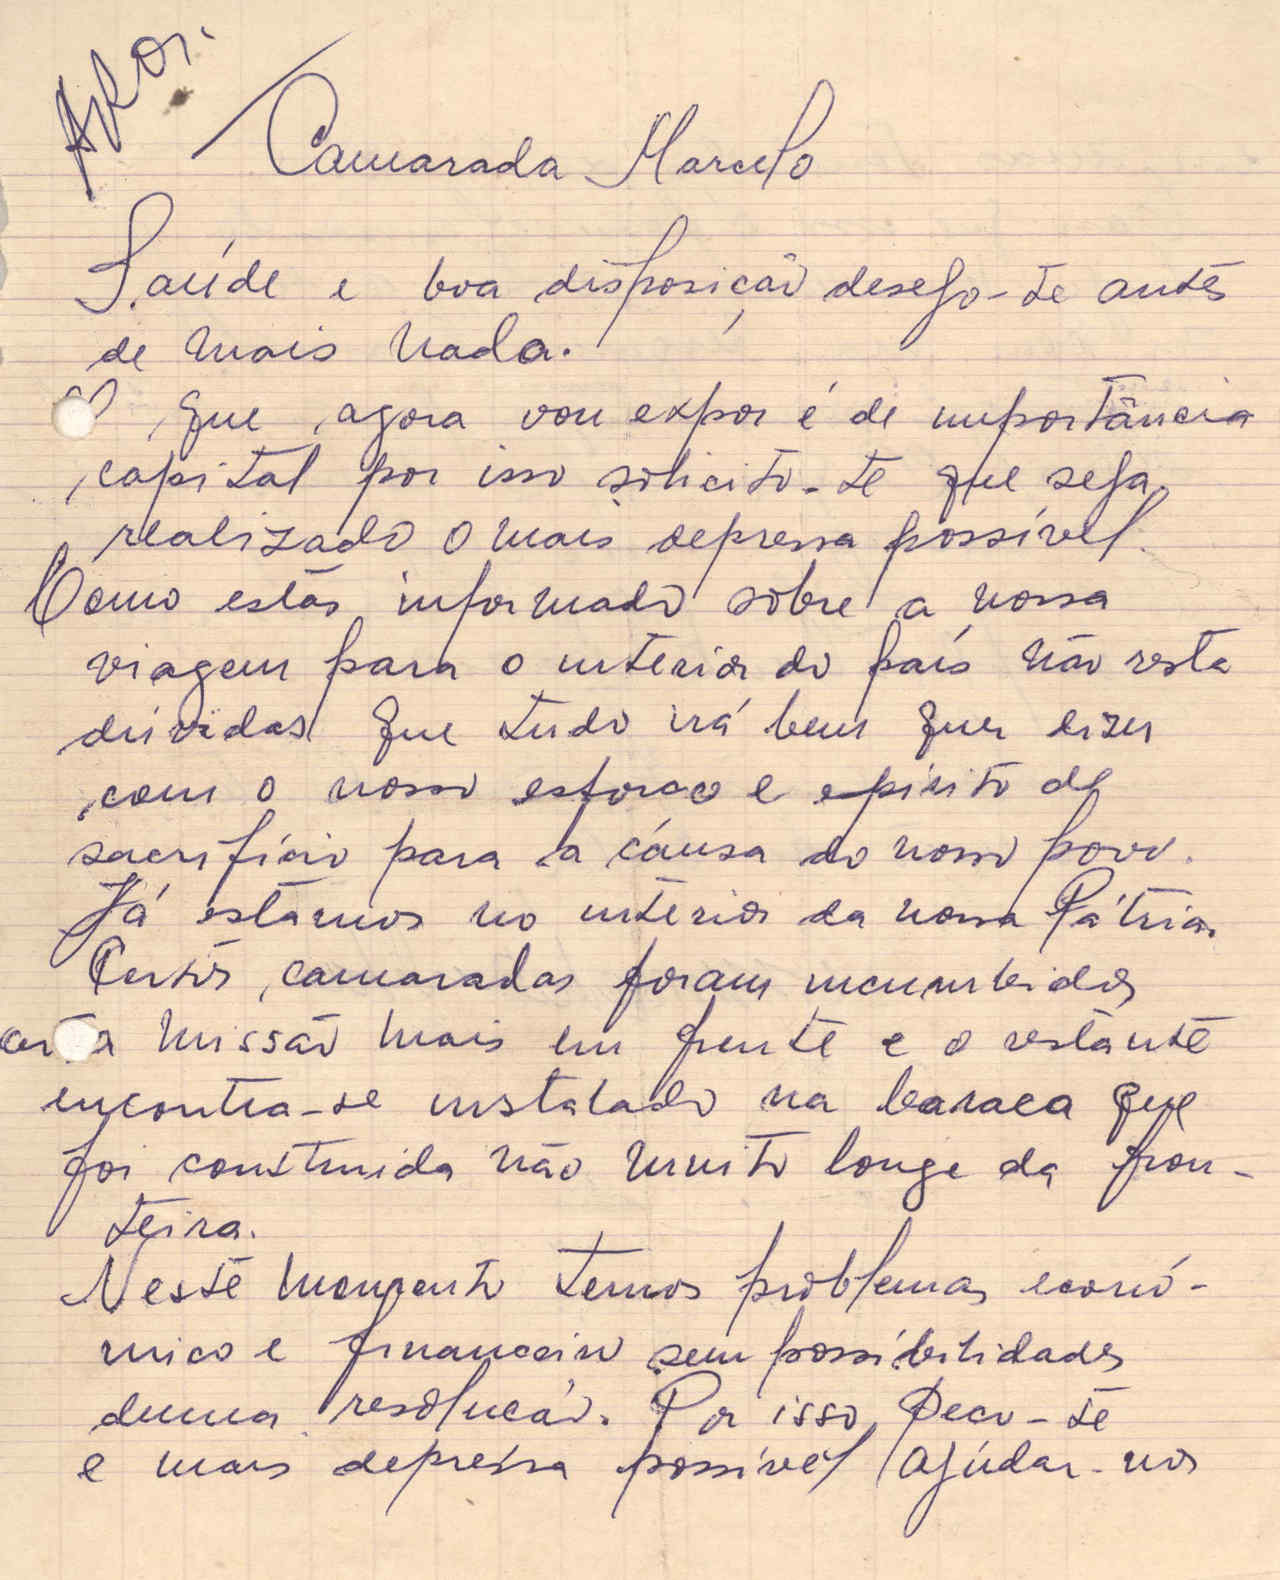 Camarada Marcelo
Saúde e boa disposição desejo-te antes
de mais nada.
O que agora vou expor é de importância
capital por isso solicito-te que seja
realizado o mais depressa possível.
Como estás informado sobre a nossa
viagem para o interior do país não resta
dúvidas que tudo irá bem quer dizer
com o nosso esforço e espírito de
sacrifício para a causa do nosso povo.
Já estamos no interior da nossa Pátria.
Certos camaradas foram incumbidos
certa missão mais em frente e o restante
encontra-se instalado na baraca que
foi construida não muito longe da fron-
teira.
Neste momento temos problemas econó-
mico e financeiro sem possibilidades
duma resolução. Por isso peço-te
e mais depressa possível ajudar-nos